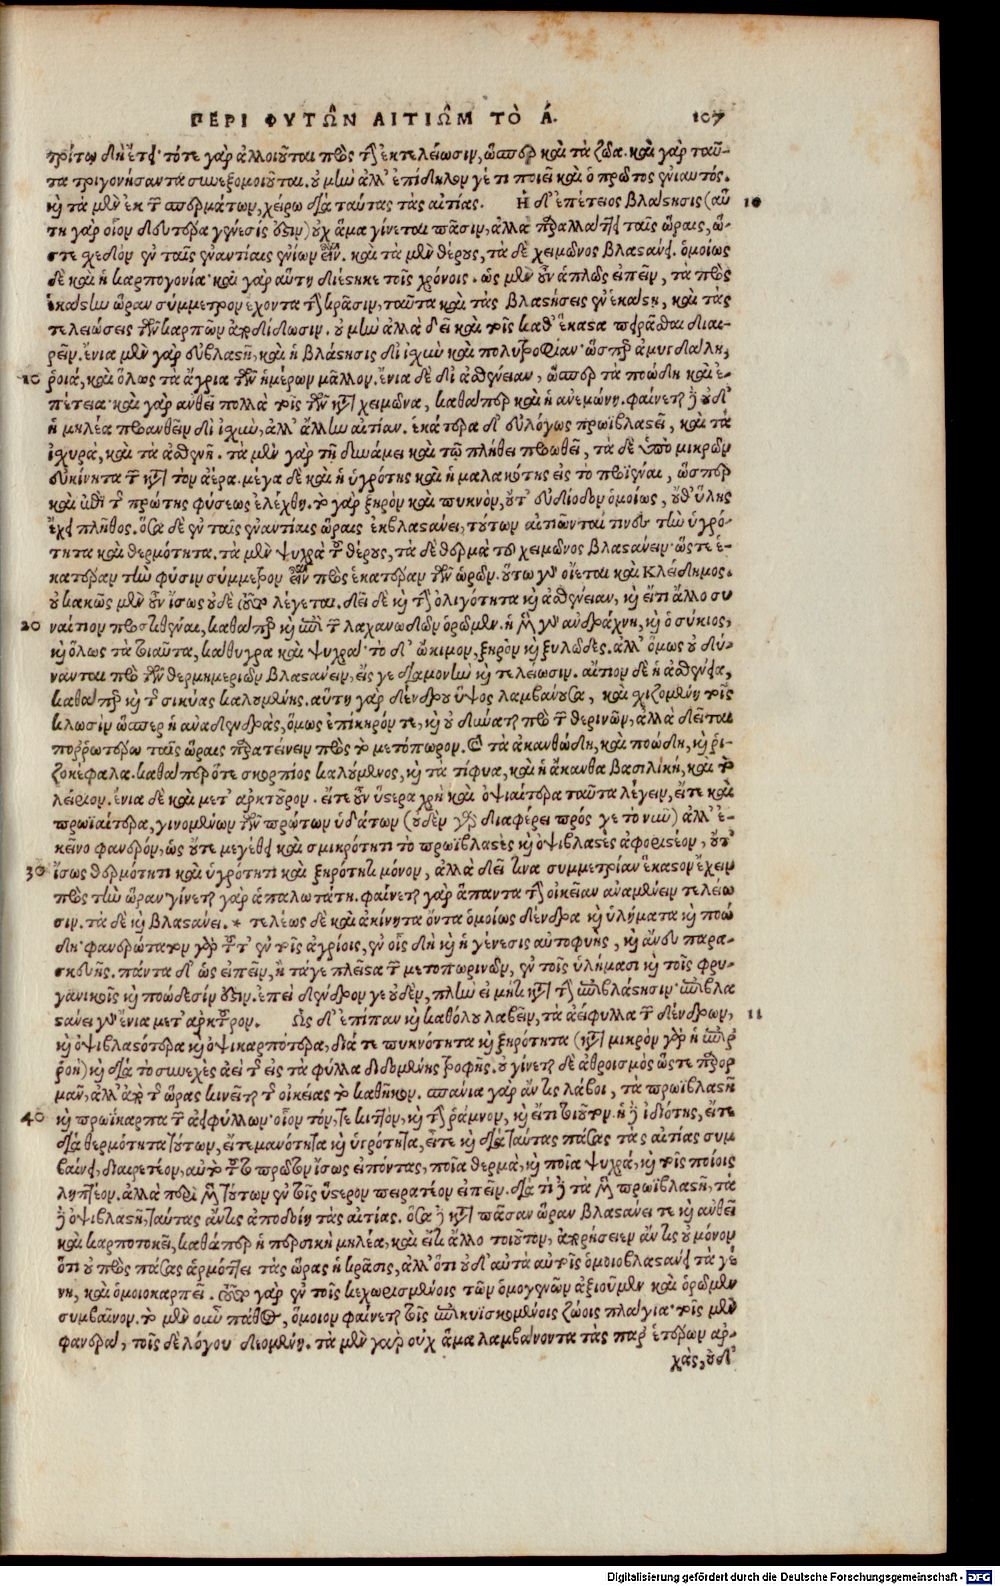 ΠΕΡΙ ΦΥΤΩ͂Ν ΑΙΤΙΩ͂Μ ΤῸ Α. 107
τρίτῳ δὴ ἔτει· τότε γὰρ ἀλλοιοῦται πρὸς τὴν ἐκτελέωσιν, ὥσπερ καὶ τὰ ζῶα. καὶ γὰρ ταῦ-
τα τριγονήσαντα συνεξομοιοῦται. οὐ μὴν ἀλλ' ἐπίδηλον γέ τι ποιεῖ καὶ ὁ πρῶτος ἐνιαυτός.
καὶ τὰ μὲν ἐκ τῶν σπερμάτων, χείρω διὰ ταύτας τὰς αἰτίας. Ἡ δ' ἐπέτειος βλάστησις (αὕ 10
τη γὰρ οἷον δευτέρα γένεσις ἐστιν) οὐχ ἅμα γίνεται πᾶσιν, ἀλλὰ παραλλάττει ταῖς ὥραις, ὥ-
στε σχεδὸν ἐν ταῖς ἐναντίαις ἐνίων εἶναι. καὶ τὰ μὲν θέρους, τὰ δὲ χειμῶνος βλαστάνει. ὁμοίως
δὲ καὶ ἡ καρπογονία· καὶ γὰρ αὕτη διέστηκε τοῖς χρόνοις. ὡς μὲν οὖν ἁπλῶς εἰπεῖν, τὰ πρὸς
ἑκάστην ὥραν σύμμετρον ἔχοντα τὴν κρᾶσιν, ταῦτα καὶ τὰς βλαστήσεις ἐν ἑκάστη, καὶ τὰς
τελειώσεις τῶν καρπῶν ἀποδίδωσιν. οὐ μὴν ἀλλὰ δεῖ καὶ τοῖς καθ' ἕκαστα πειρᾶσθαι διαι-
ρεῖν. ἔνια μὲν γὰρ εὐβλαστῆ, καὶ ἡ βλάστησις δι ἰσχὺν καὶ πολυτροφίαν· ὥσπερ ἀμυγδαλῆ,
10 ῥοιά, καὶ ὅλως τὰ ἄγρια τῶν ἡμέρων μᾶλλον. ἔνια δὲ δι ἀσθένειαν, ὥσπερ τὰ ποώδη καὶ ἐ-
πέτεια· καὶ γὰρ ἀνθεῖ πολλὰ τοῖς τῶν κατὰ χειμῶνα, καθάπερ καὶ ἡ ἀνεμώνη. φαίνεται δὲ οὐδ'
ἡ μηλέα προανθεῖν δι ἰσχὺν, ἀλλ' ἄλλην αἰτίαν. ἑκάτερα δ' εὐλόγως πρωϊβλαστεῖ, καὶ τὰ
ἰσχυρὰ, καὶ τὰ ἀσθενῆ. τὰ μὲν γὰρ τῇ δυνάμει καὶ τῷ πλήθει προωθεῖ, τὰ δὲ ὑπὸ μικρῶν
εὐκίνητα τῶν κατὰ τὸν ἀέρα. μέγα δὲ καὶ ἡ ὑγρότης καὶ ἡ μαλακότης εἰς τὸ προϊέναι, ὥσπερ
καὶ ἐπὶ τῆς πρώτης φύσεως ἐλέχθη. τὸ γὰρ ξηρὸν καὶ πυκνὸν, οὔτ' εὐδίοδον ὁμοίως, οὔθ' ὕλης
ἔχει πλῆθος. ὅσα δὲ ἐν ταῖς ἐναντίαις ὥραις ἐκβλαστάνει, τούτων αἰτιῶνταί τινες τὴν ὑγρό-
τητα καὶ θερμότητα. τὰ μὲν ψυχρὰ τοῦ θέρους, τὰ δὲ θερμὰ τοῦ χειμῶνος βλαστάνειν· ὥστε ἑ-
κατέραν τὴν φύσιν σύμμετρον εἶναι πρὸς ἑκατέραν τῶν ὡρῶν. οὕτω γὰρ οἴεται καὶ Κλείδημος.
οὐ κακῶς μὲν οὖν ἴσως οὐδὲ τοῦτο λέγεται. δεῖ δὲ καὶ τὴν ὀλιγότητα καὶ ἀσθένειαν, καὶ εἴ τι ἄλλο συ
20 ναίτιον προστιθέναι, καθάπερ καὶ ἐπὶ τῶν λαχανωδῶν ὁρῶμεν. ἡ μὲν γὰρ ἀνδράχνη, καὶ ὁ σίκυος,
καὶ ὅλως τὰ τοιαῦτα, κάθυγρα καὶ ψυχρά· τὸ δ' ὤκιμον, ξηρὸν καὶ ξυλῶδες. ἀλλ' ὅμως οὐ δύ-
νανται πρὸ τῶν θερμημεριῶν βλαστάνειν, εἴς γε διαμονὴν καὶ τελέωσιν. αἴτιον δὲ ἡ ἀσθένεια,
καθάπερ καὶ τῆς σικύας καλουμένης. αὕτη γὰρ δένδρου ὕψος λαμβάνουσα, καὶ σχιζομένη τοῖς
κλωσὶν ὥσπερ ἡ ἀναδενδρὰς, ὅμως ἐπίκηρόν τε, καὶ οὐ δύναται πρὸ τῶν θερινῶν, ἀλλὰ δεῖται
πορρωτέρω ταῖς ὥραις παρατείνειν πρὸς τὸ μετόπωρον. Ἔτι τὰ ἀκανθώδη, καὶ ποώδη, καὶ ῥι-
ζοκέφαλα. καθάπερ ὅ τε σκορπίος καλούμενος, καὶ τὰ τίφυα, καὶ ἡ ἄκανθα βασιλικὴ, καὶ τὸ
λείριον. ἔνια δὲ καὶ μετ' ἀρκτοῦρον. εἴτε οὖν ὕστερα χρὴ καὶ ὀψιαίτερα ταῦτα λέγειν, εἴτε καὶ
πρωϊαίτερα, γινομένων τῶν πρώτων ὑδάτων (οὐδὲν γὰρ διαφέρει πρός γε τὸ νῦν) ἀλλ' ἐ-
κεῖνο φανερὸν, ὡς οὔτε μεγέθει καὶ σμικρότητι τὸ πρωϊβλαστὲς καὶ ὀψιβλαστὲς ἀφοριστέον, οὔτ'
30 ἴσως θερμότητι καὶ ὑγρότητι καὶ ξηρότητι μόνον, ἀλλὰ δεῖ τινα συμμετρίαν ἕκαστον ἔχειν
πρὸς τὴν ὥραν· γίνεται γὰρ ἁπαλωτάτη. φαίνεται γὰρ ἅπαντα τὴν οἰκείαν ἀναμένειν τελέω
σιν. τὰ δὲ καὶ βλαστάνει. * τελέως δὲ καὶ ἀκίνητα ὄντα ὁμοίως δένδρα καὶ ὑλήματα καὶ ποώ
δη· φανερώτατον γὰρ τοῦτ' ἐν τοῖς ἀγρίοις, ἐν οἷς δὴ καὶ ἡ γένεσις αὐτοφυὴς, καὶ ἄνευ παρα-
σκευῆς. πάντα δ' ὡς εἰπεῖν, ἢ τά γε πλεῖστα τῶν μετοπωρινῶν, ἐν τοῖς ὑλήμασι καὶ τοῖς φρυ-
γανικοῖς καὶ ποώδεσίν ἐστιν. ἐπεὶ δένδρον γε οὐδὲν, πλὴν εἰ μή τι κατὰ τὴν ἐπιβλάστησιν· ἐπιβλα
στάνει γὰρ ἔνια μετ' ἀρκτοῦρον. Ὡς δ' ἐπίπαν καὶ καθόλου λαβεῖν, τὰ ἀείφυλλα τῶν δένδρων, 11
καὶ ὀψιβλαστότερα καὶ ὀψικαρπότερα, διά τε πυκνότητα καὶ ξηρότητα (κατὰ μικρὸν γὰρ ἡ ἐπιρ
ροὴ) καὶ διὰ τὸ συνεχὲς ἀεὶ τῆς εἰς τὰ φύλλα διδομένης τροφῆς. οὐ γίνεται δὲ ἀθροισμὸς ὥστε παρορ
μᾶν, ἀλλ' ἀπὸ τῆς ὥρας κινεῖται τῆς οἰκείας τὸ καθῆκον. σπάνια γὰρ ἄν τις λάβοι, τὰ πρωϊβλαστῆ
40 καὶ πρωΐκαρπα τῶν ἀειφύλλων· οἷον τόν, τε κιττὸν, καὶ τὴν ῥάμνον, καὶ εἴ τι τοιοῦτον. ἡ δὲ ἰδιότης, εἴτε
διὰ θερμότητα τούτων, εἴτε μανότητα καὶ ὑγρότητα, εἴτε καὶ διὰ ταύτας πάσας τὰς αἰτίας συμ
βαίνει, διαιρετέον, αὐτὸ τοῦτο πρῶτον ἴσως εἰπόντας, ποῖα θερμὰ, καὶ ποῖα ψυχρά, καὶ τοῖς ποίοις
ληπτέον. ἀλλὰ περὶ μὲν τούτων ἐν τοῖς ὕστερον πειρατέον εἰπεῖν. διὰ τί δὲ τὰ μὲν πρωϊβλαστῆ, τὰ
δὲ ὀψιβλαστῆ, ταύτας ἄν τις ἀποδοίη τὰς αἰτίας. ὅσα δὲ κατὰ πᾶσαν ὥραν βλαστάνει τε καὶ ἀνθεῖ
καὶ καρποτοκεῖ, καθάπερ ἡ περσικὴ μηλέα, καὶ εἴ τι ἄλλο τοιοῦτον, ἀπορήσειεν ἄν τις οὐ μόνον
ὅτι οὐ πρὸς πάσας ἁρμόττει τὰς ὥρας ἡ κρᾶσις, ἀλλ' ὅτι οὐδ' αὐτὰ αὑτοῖς ὁμοιοβλαστάνει τὰ γέ
νη, καὶ ὁμοιοκαρπεῖ. τοῦτο γὰρ ἐν τοῖς κεχωρισμένοις τῶν ὁμογενῶν ἀξιοῦμεν καὶ ὁρῶμεν
συμβαῖνον. τὸ μὲν οὖν πάθος, ὅμοιον φαίνεται τοῖς ἐπικυϊσκομένοις ζώοις πλάγια· τοῖς μὲν
φανερά, τοῖς δὲ λόγου δεομένη. τὰ μὲν γὰρ οὐχ ἅμα λαμβάνοντα τὰς παρ' ἑτέρων ἀρ-
χὰς, οὐδ'
Digitalisierung gefördert durch die Deutsche Forschungsgemeinschaft - DFG